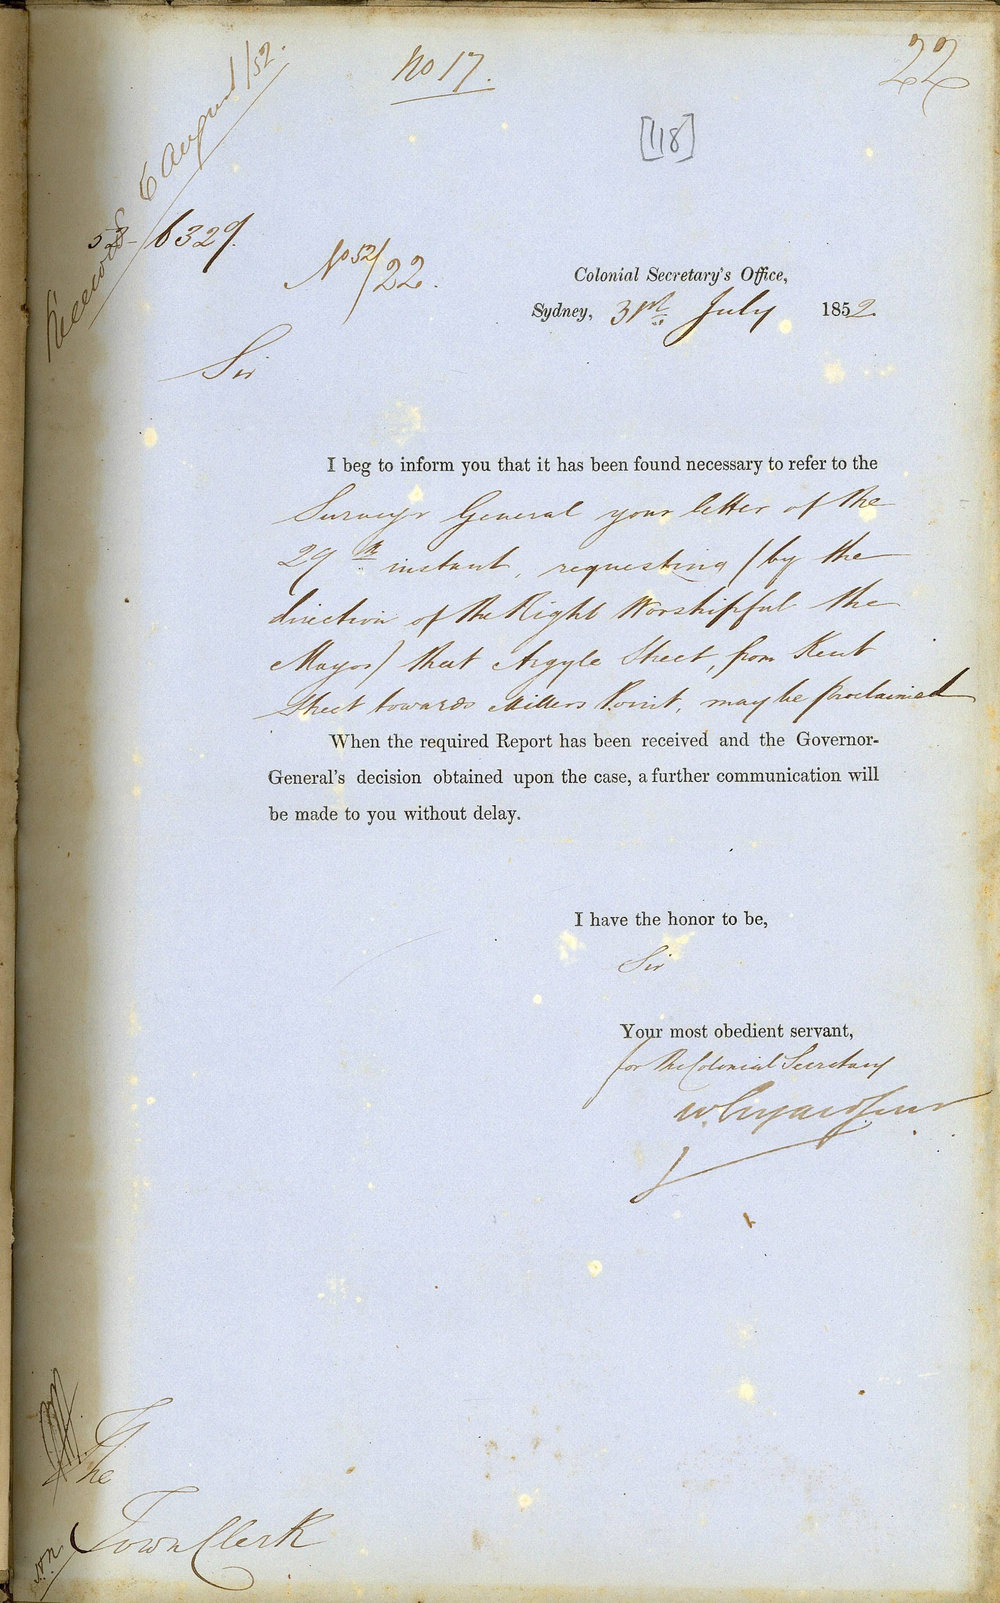 No 17.
22
[118]
Received 6 August /52.
52-/6329.
No 52/22.
Colonial Secretary's Office,
Sydney, 31st July 1852.
Sir
I beg to inform you that it has been found necessary to refer to the
Surveyr General your letter of the
29th instant, requesting (by the
direction of the Right Worshipful the
Mayor) that Argyle Street, from Kent
Street towards Millers Point, may be proclaimed
When the required Report has been received and the Governor-
General's decision obtained upon the case, a further communication will
be made to you without delay.
I have the honor to be,
Sir
Your most obedient servant,
for the Colonial Secretary
W. Elyard Junr
The
Town Clerk